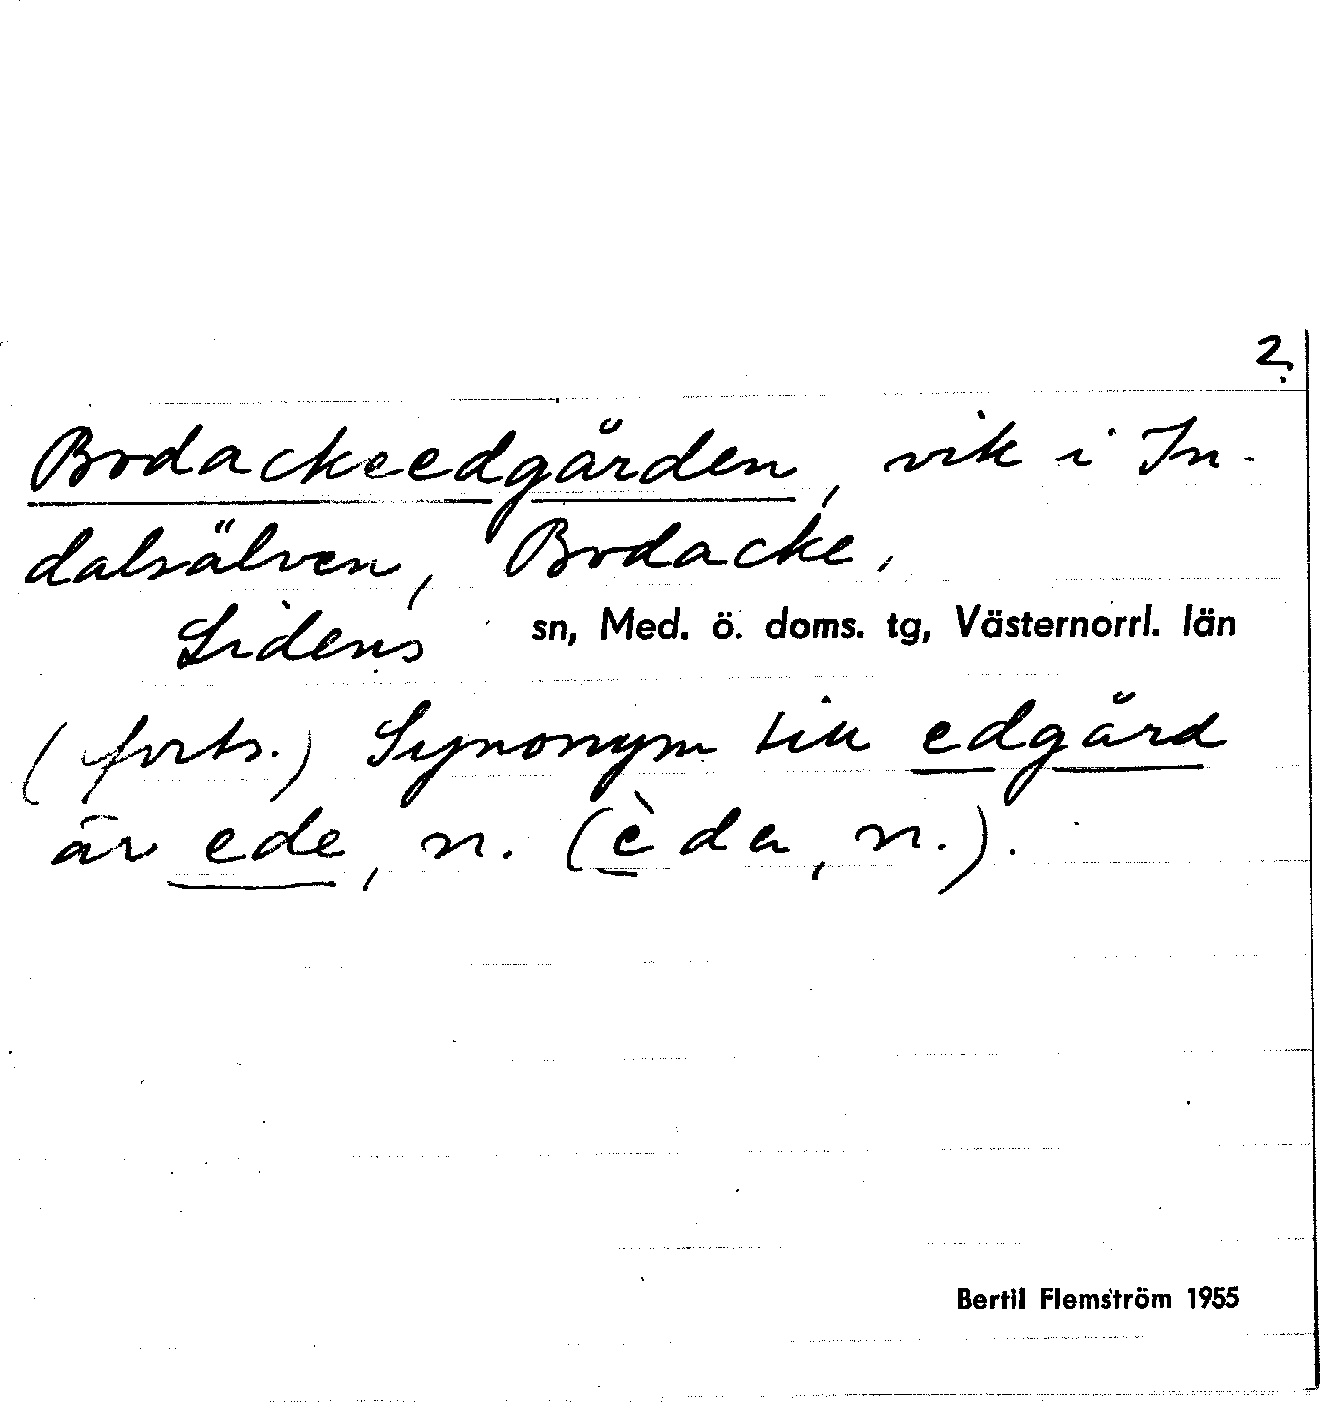 2.
Bodackeedgården, vik i In-
dalsälven, Bodacke,
Lidens sn, Med. ö. doms. tg, Västernorrl. län
(forts.) Synonym till edgård
är ede, n. (èda, n.).
Bertil Flemström 1955